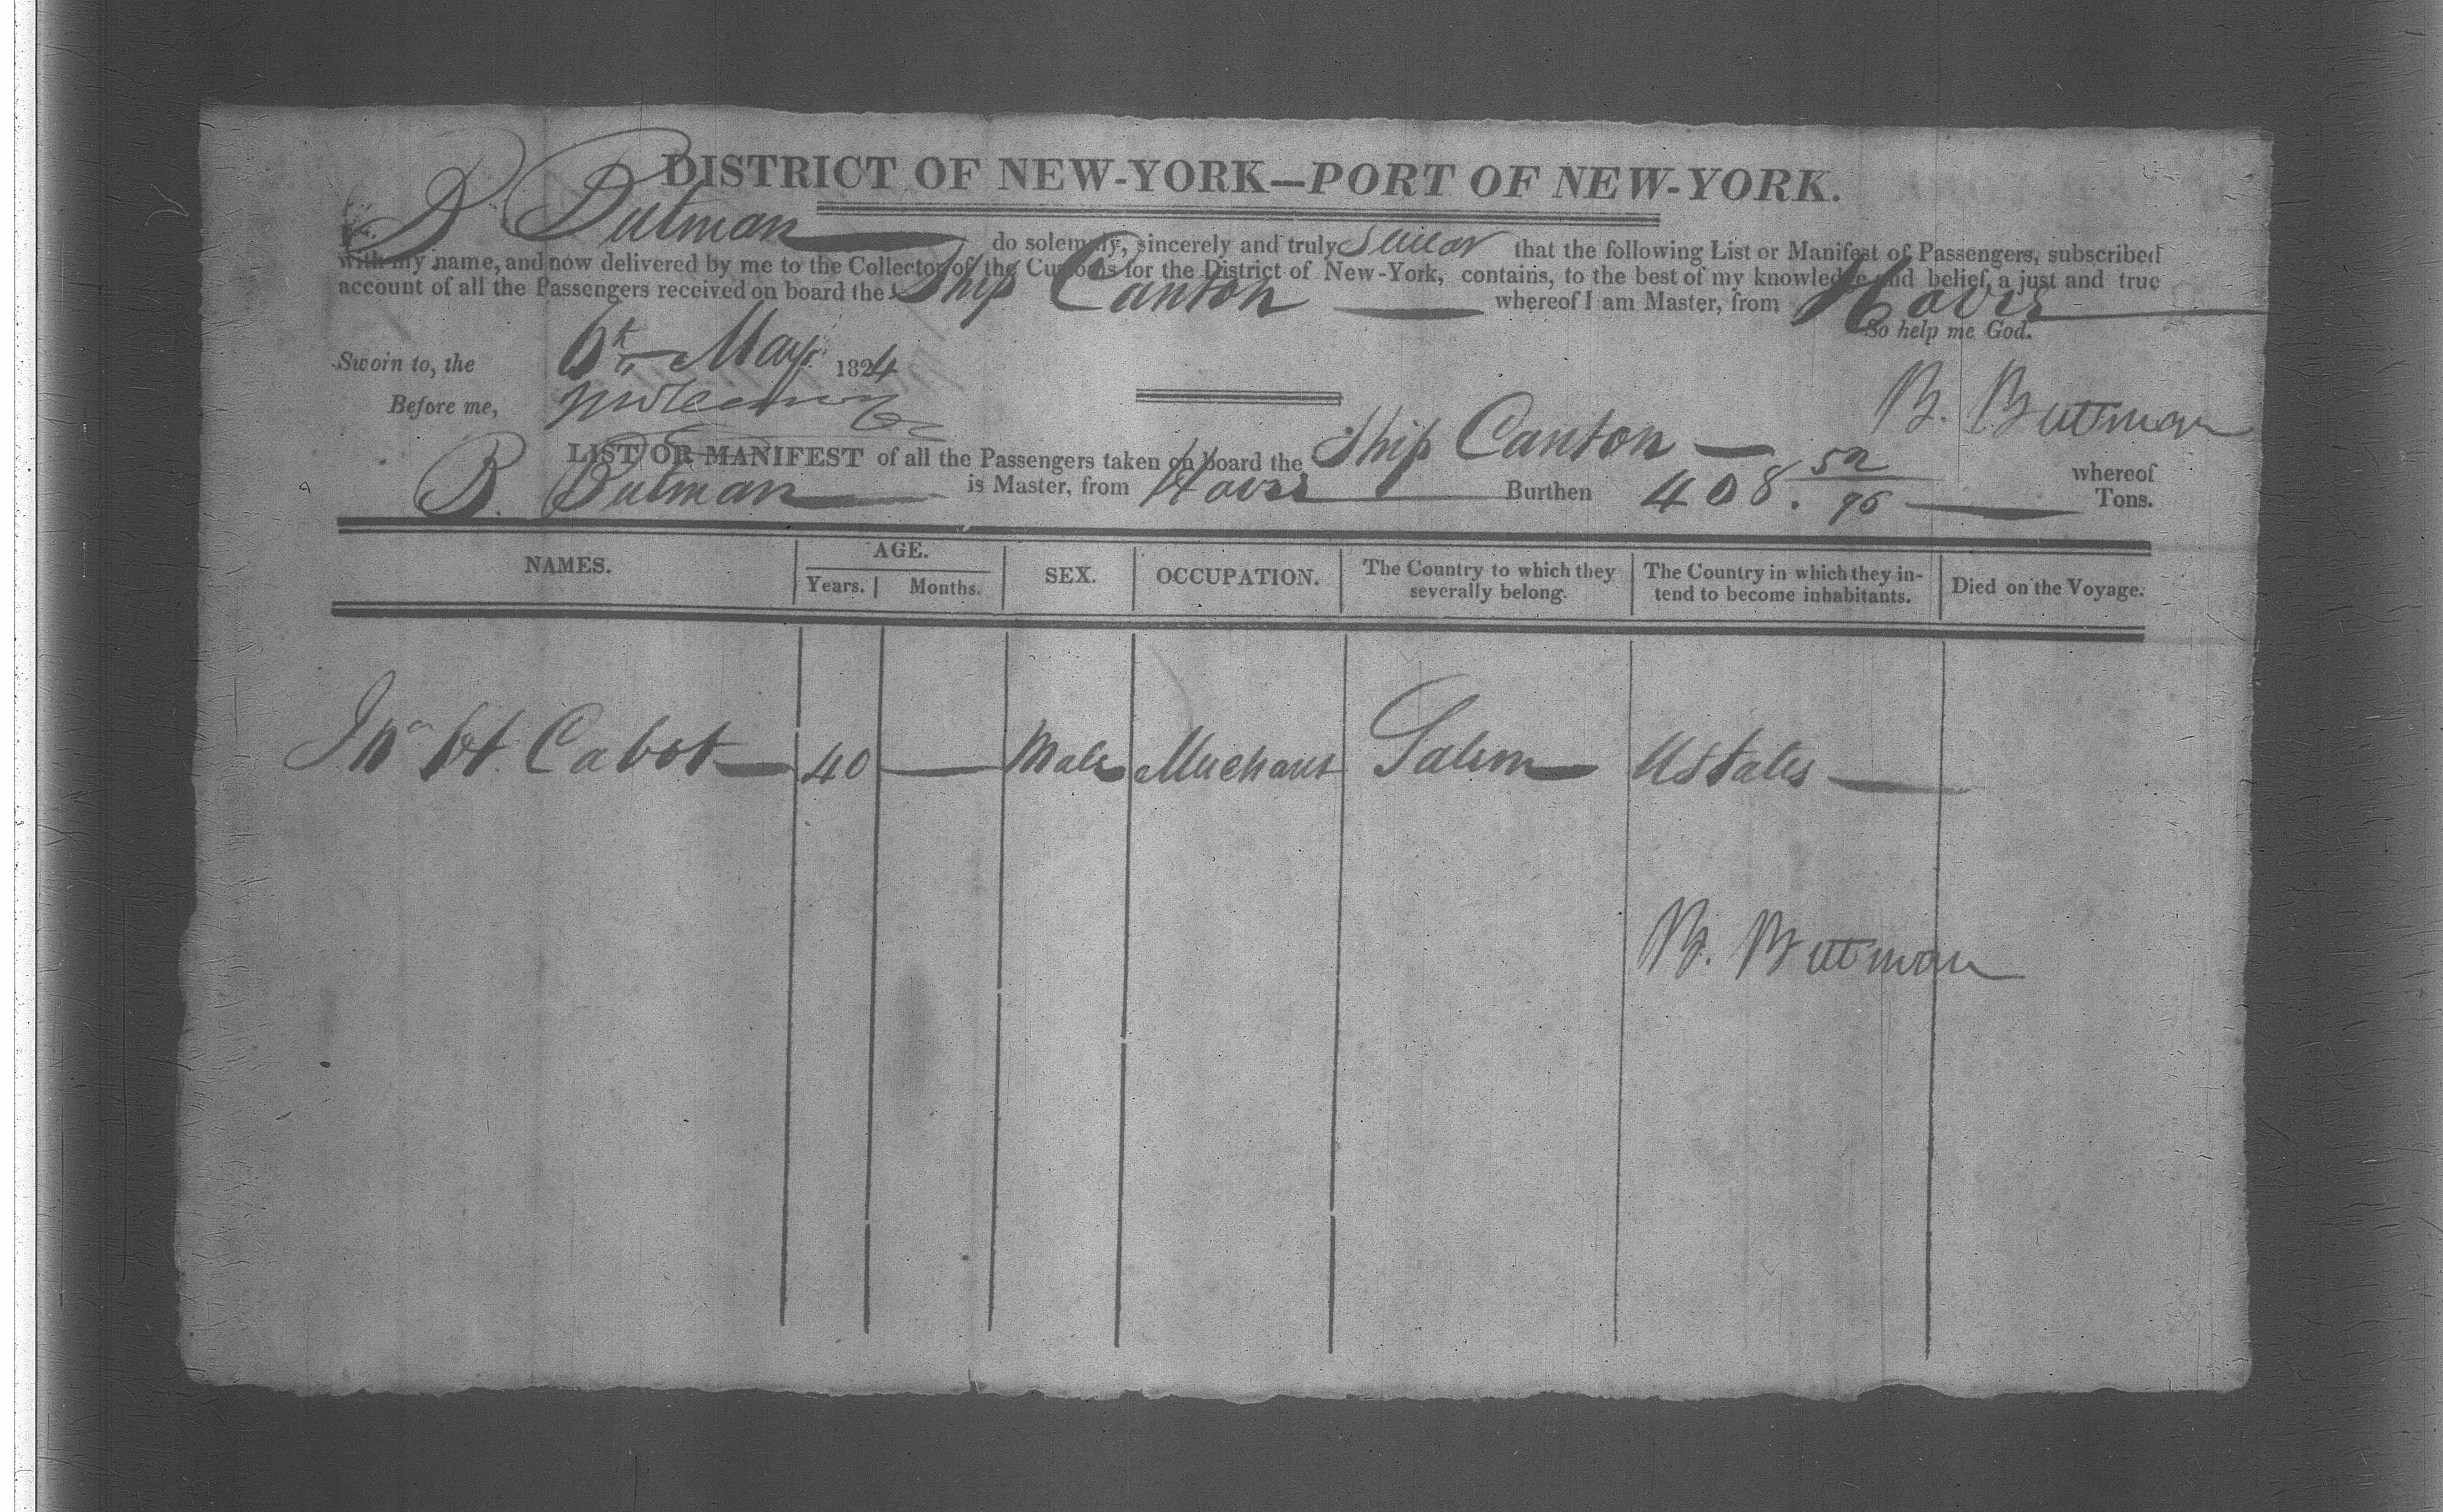 DISTRICT OF NEW-YORK—PORT OF NEW-YORK.
I, B Butman do solemnly, sincerely and truly Swear that the following List or Manifest of Passengers, subscribed
with my name, and now delivered by me to the Collector of the Customs for the District of New-York, contains, to the best of my knowledge and belief, a just and true
account of all the Passengers received on board the Ship Canton whereof I am Master, from Havre
So help me God.
Sworn to, the 6th May 1824
Before me,
B. Buttman
LIST OR MANIFEST of all the Passengers taken on board the Ship Canton — whereof
B. Butman is Master, from Havre Burthen 408. 52/95 Tons.
NAMES. AGE. SEX. OCCUPATION. The Country to which they severally belong. The Country in which they intend to become inhabitants. Died on the Voyage.
Years. Months.
Jno H Cabot — 40 — Male Merchant Salem UStates —
B. Buttman